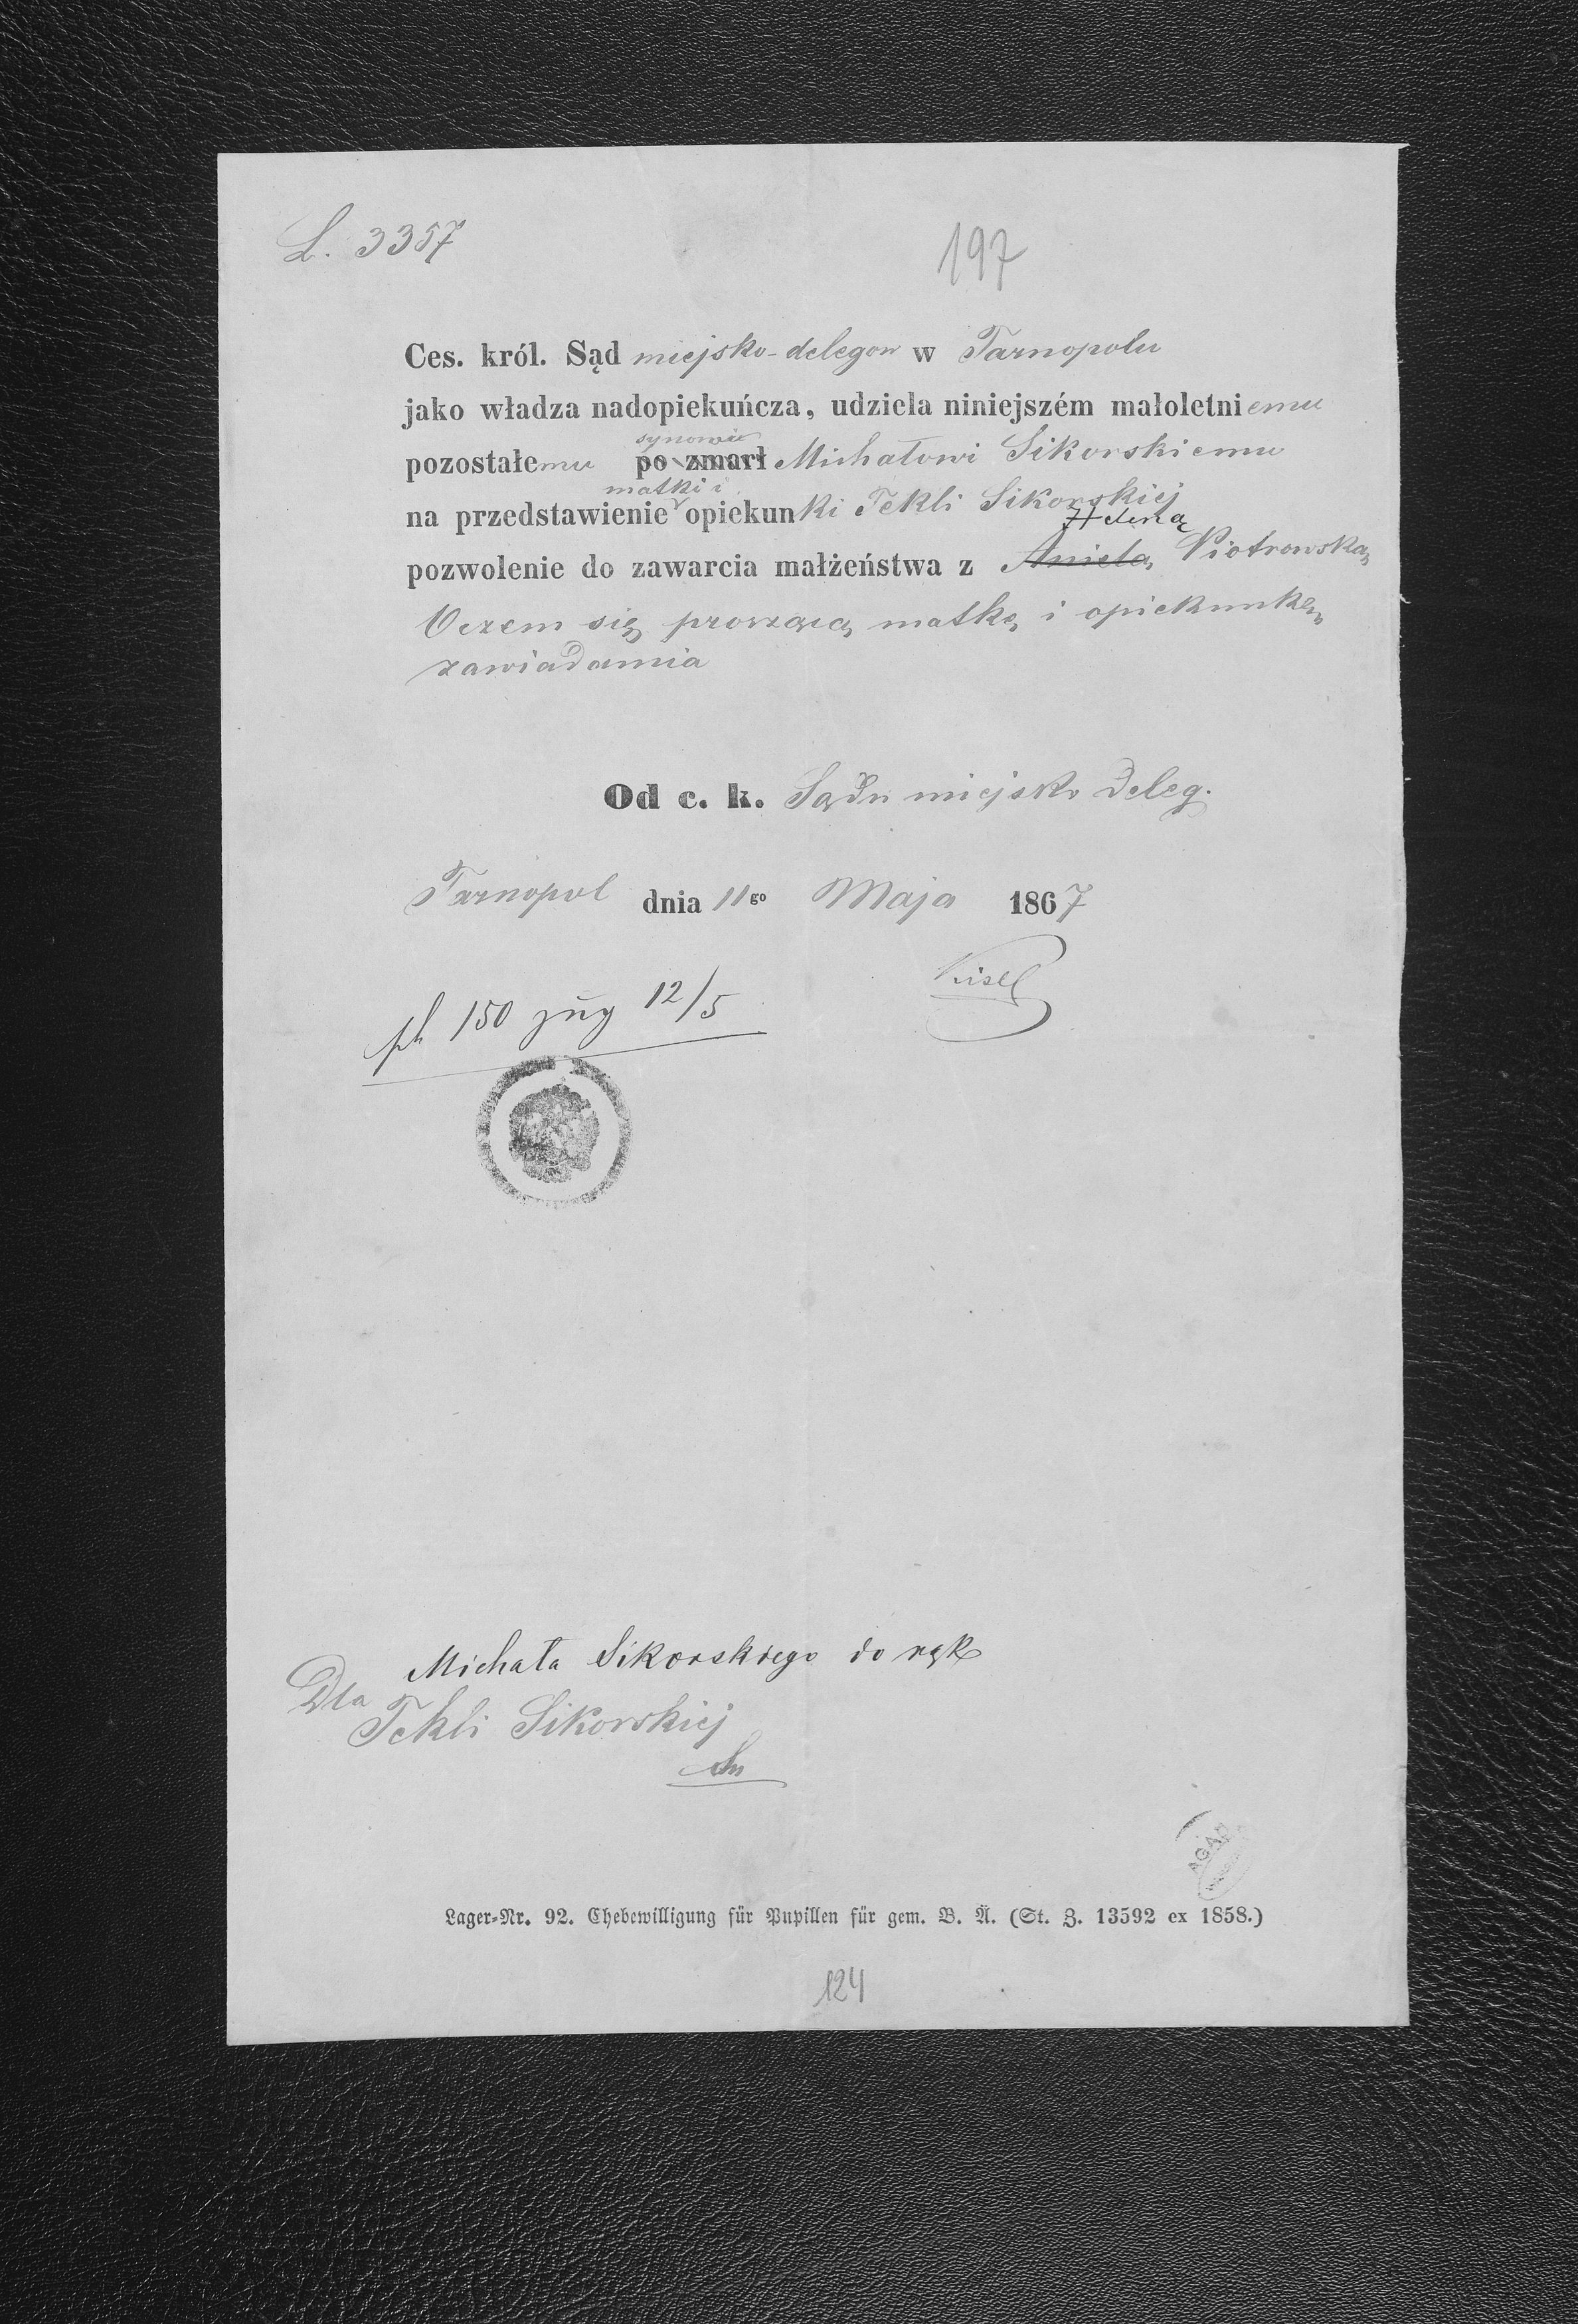 L. 3357
197
Ces. król. Sąd miejsko-delegow w Tarnopolu
jako władza nadopiekuńcza, udziela niniejszém małoletniemu
synowi
pozostałemu po zmarł Michałowi Sikorskiemu
matki i
na przedstawienie opiekunki Tekli Sikorskiej
Heleną
pozwolenie do zawarcia małżeństwa z Anielą Piotrowską
O czem się proszącą matkę i opiekunkę
zawiadamia
Od c. k. Sądu miejsko deleg.
Tarnopol dnia 11go Maja 1867
150 12/5
Michała Sikorskiego do rąk
Dla
Tekli Sikorskiej
AGAD
Lager-Nr. 92. Ehebewilligung für Pupillen für gem. B. Ä. (St. Z. 13592 ex 1858.)
124